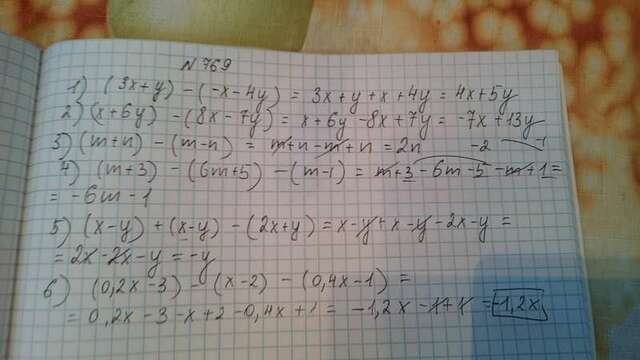 N 769
1) (3x+y) - (-x-4y) = 3x+y+x+4y = 4x+5y
2) (x+6y) - (8x-7y) = x+6y-8x+7y = -7x+13y
3) (m+n) - (m-n) = m+n-m+n = 2n -2 -1
4) (m+3) - (6m+5) - (m-1) = m+3-6m-5-m+1 =
= -6m-1
5) (x-y) + (x-y) - (2x+y) = x-y+x-y-2x-y =
= 2x-2x-y = -y
6) (0,2x-3) - (x-2) - (0,4x-1) =
= 0,2x-3-x+2-0,4x+1 = -1,2x-1+1 = -1,2x